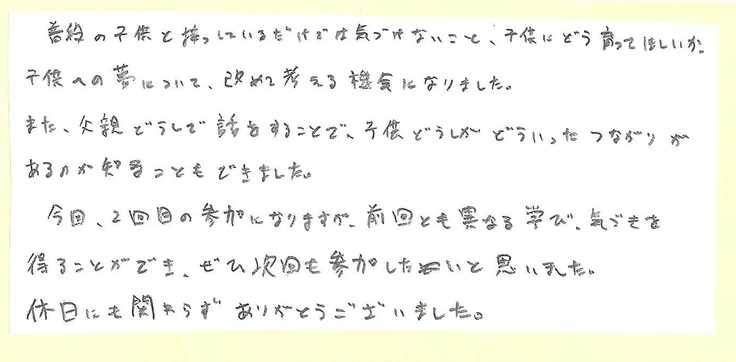 普段の子供と接しているだけでは気づけないこと、子供にどう育ってほしいか、
子供への夢について、改めて考える機会になりました。
また、父親どうしで話をすることで、子供どうしがどういったつながりが
あるのか知ることもできました。
今回、2回目の参加になりますが、前回とも異なる学び、気づきを
得ることができ、ぜひ次回も参加したいと思いました。
休日にも関わらずありがとうございました。